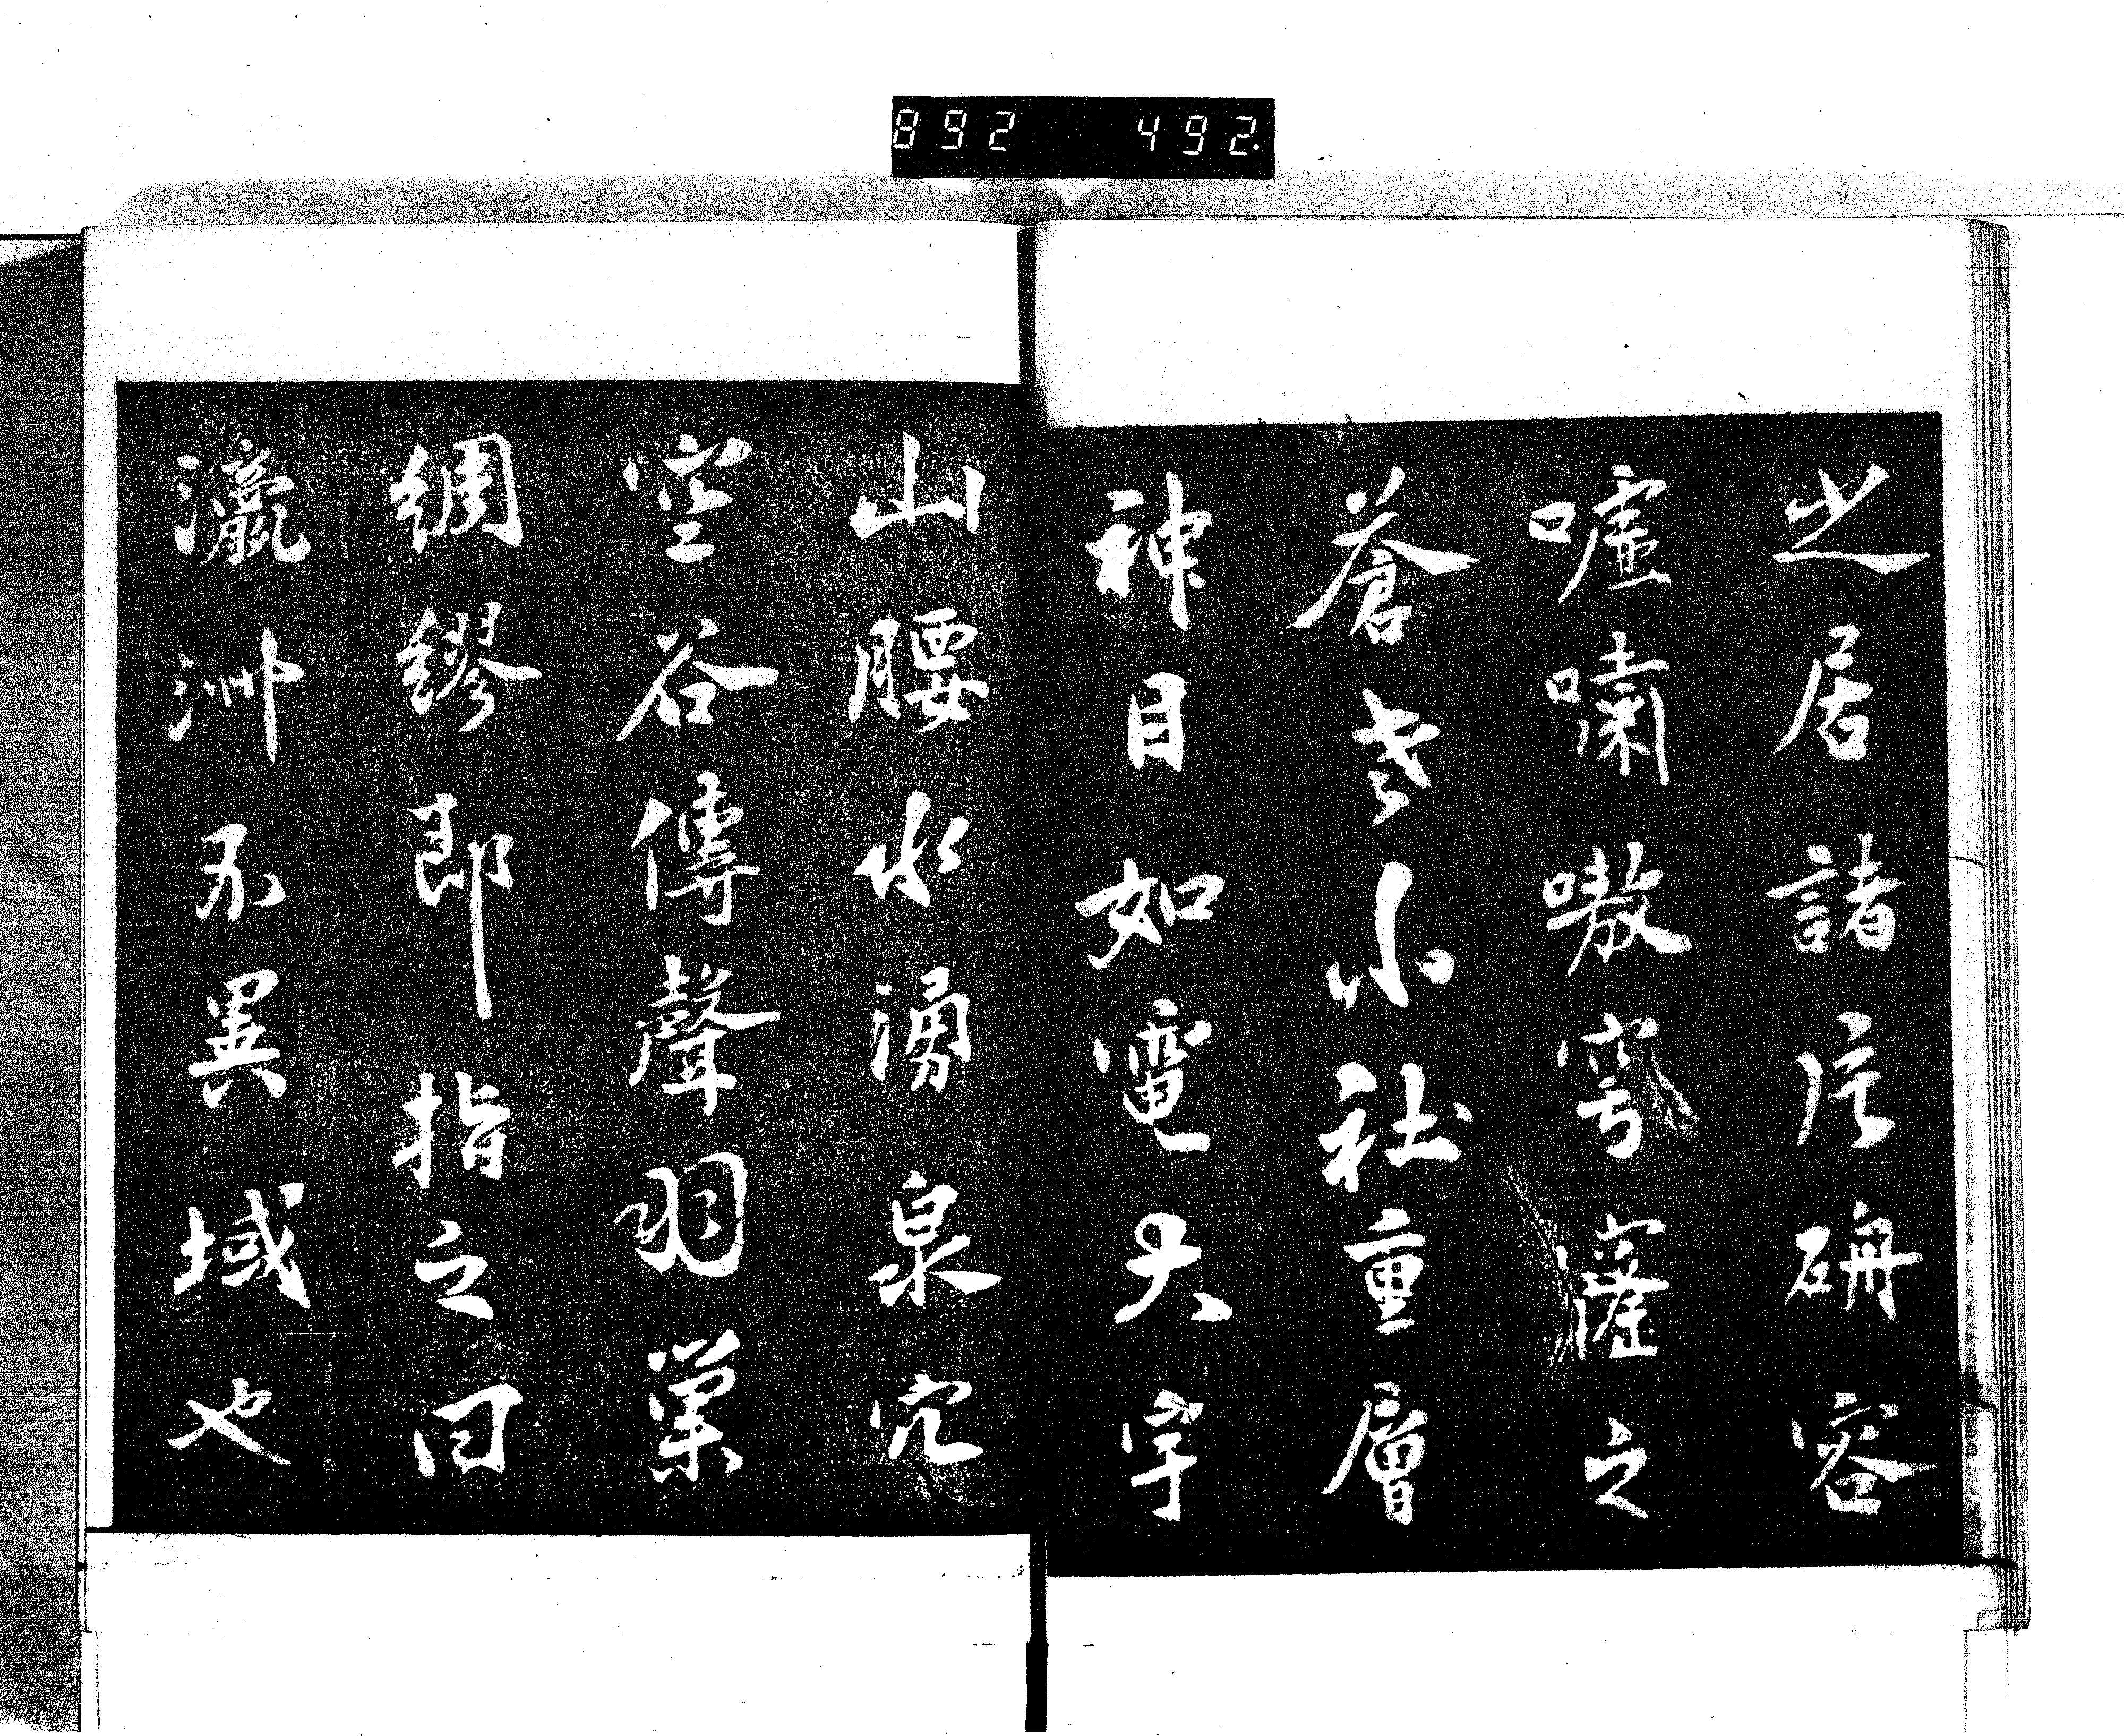 892 492.
之居諸唇硼容
嘘嘯嗷穹窿之
蒼老小社重層
神目如電大字
山腰水湧泉穴
空谷傳聲羽巢
綢繆即指之曰
瀛洲不異域也